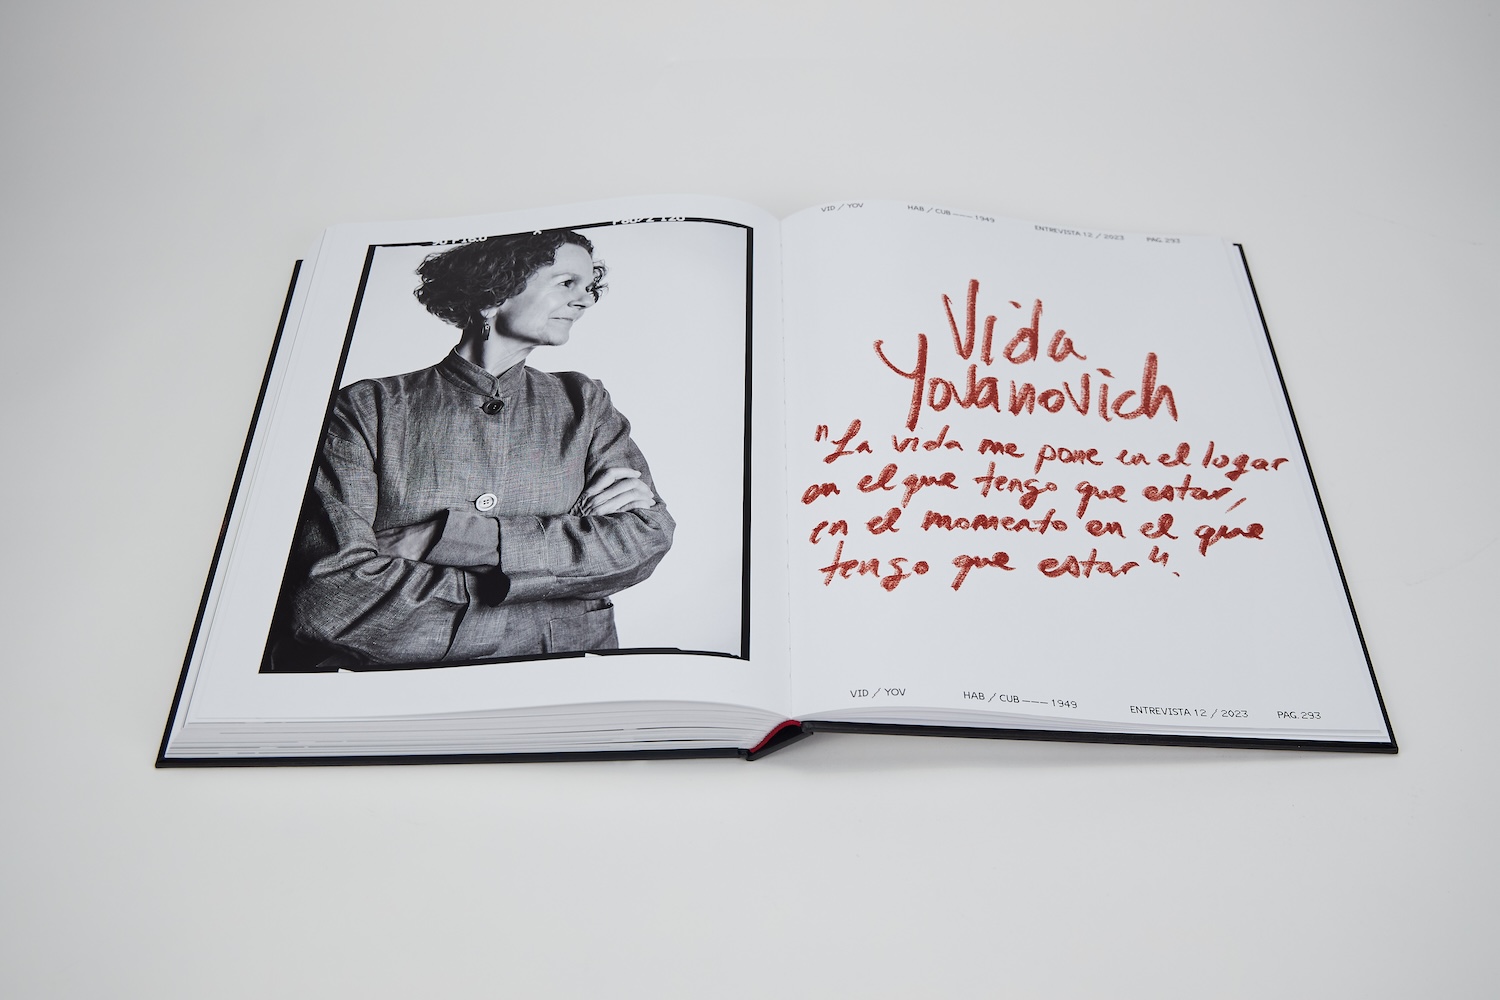 VID / YOV HAB / CUB ––– 1949 ENTREVISTA 12 / 2023 PAG. 293
Vida
Yovanovich
"La vida me pone en el logar
en el que tengo que estar,
en el momento en el que
tengo que estar".
VID / YOV HAB / CUB ––– 1949 ENTREVISTA 12 / 2023 PAG. 293